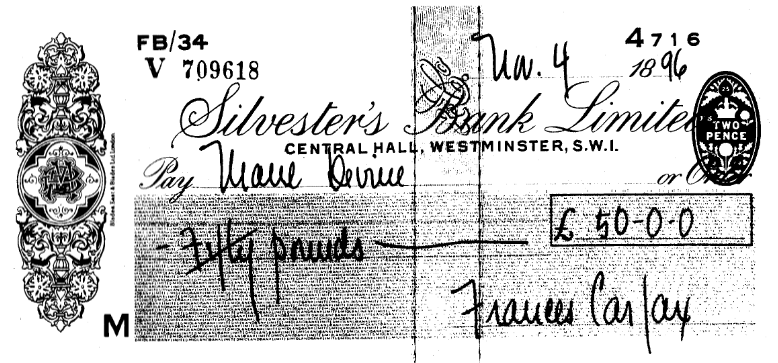 FB/34
V 709618
Nov. 4
4716
1896
Silvester's Bank Limited
CENTRAL HALL, WESTMINSTER, S.W.I.
TWO PENCE
Pay Marie Devine or Order
Fifty pounds
£ 50-0-0
M
Frances Carfax